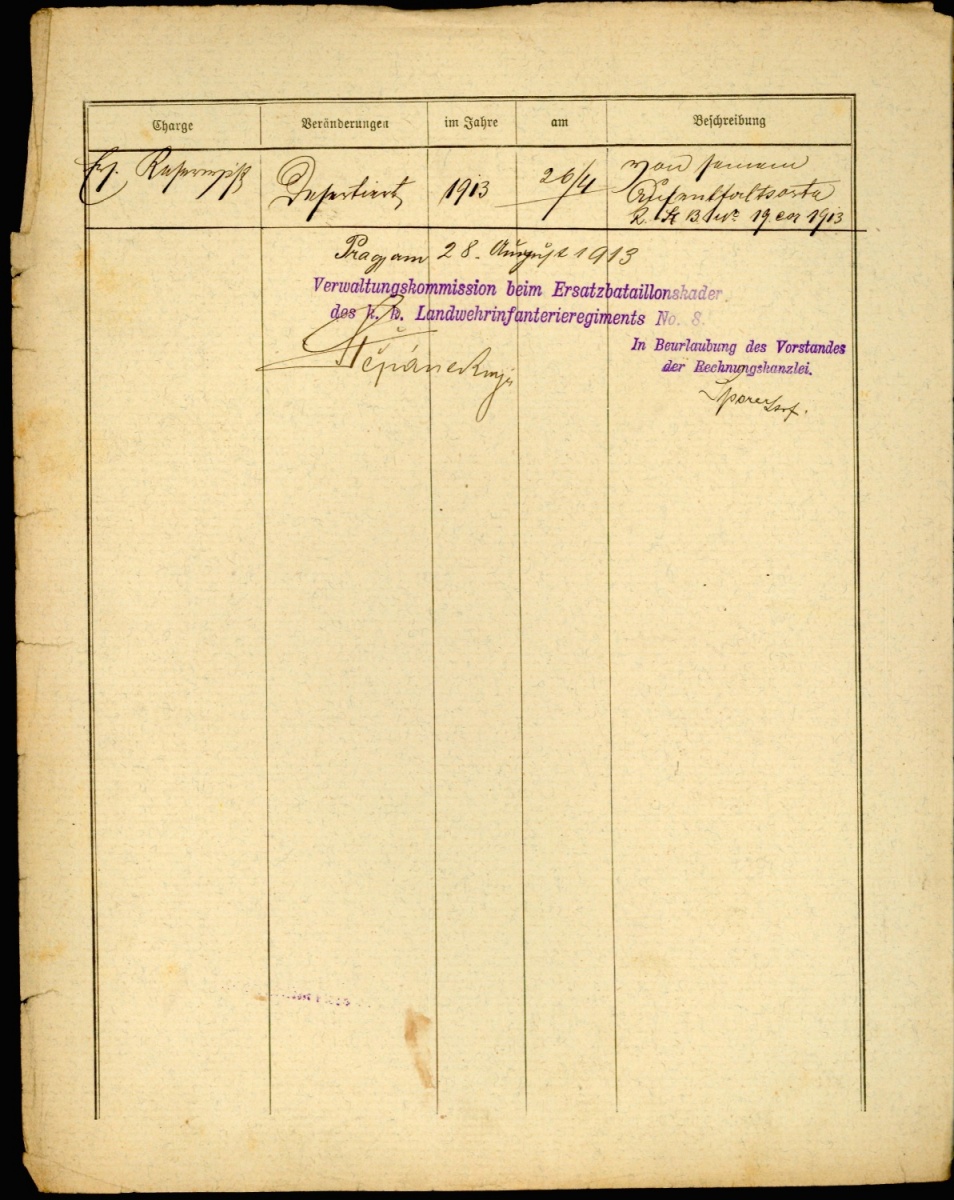 Charge Veränderungen im Jahre am Beschreibung
Ers. Reservist Desertiert 1913 26/4 von seinem
Aufenthaltsorte
1913
Prag, am 28. August 1913
Verwaltungskommission beim Ersatzbataillonskader
des k. k. Landwehrinfanterieregiments No. 8.
In Beurlaubung des Vorstandes
der Rechnungskanzlei.
Štěpánek